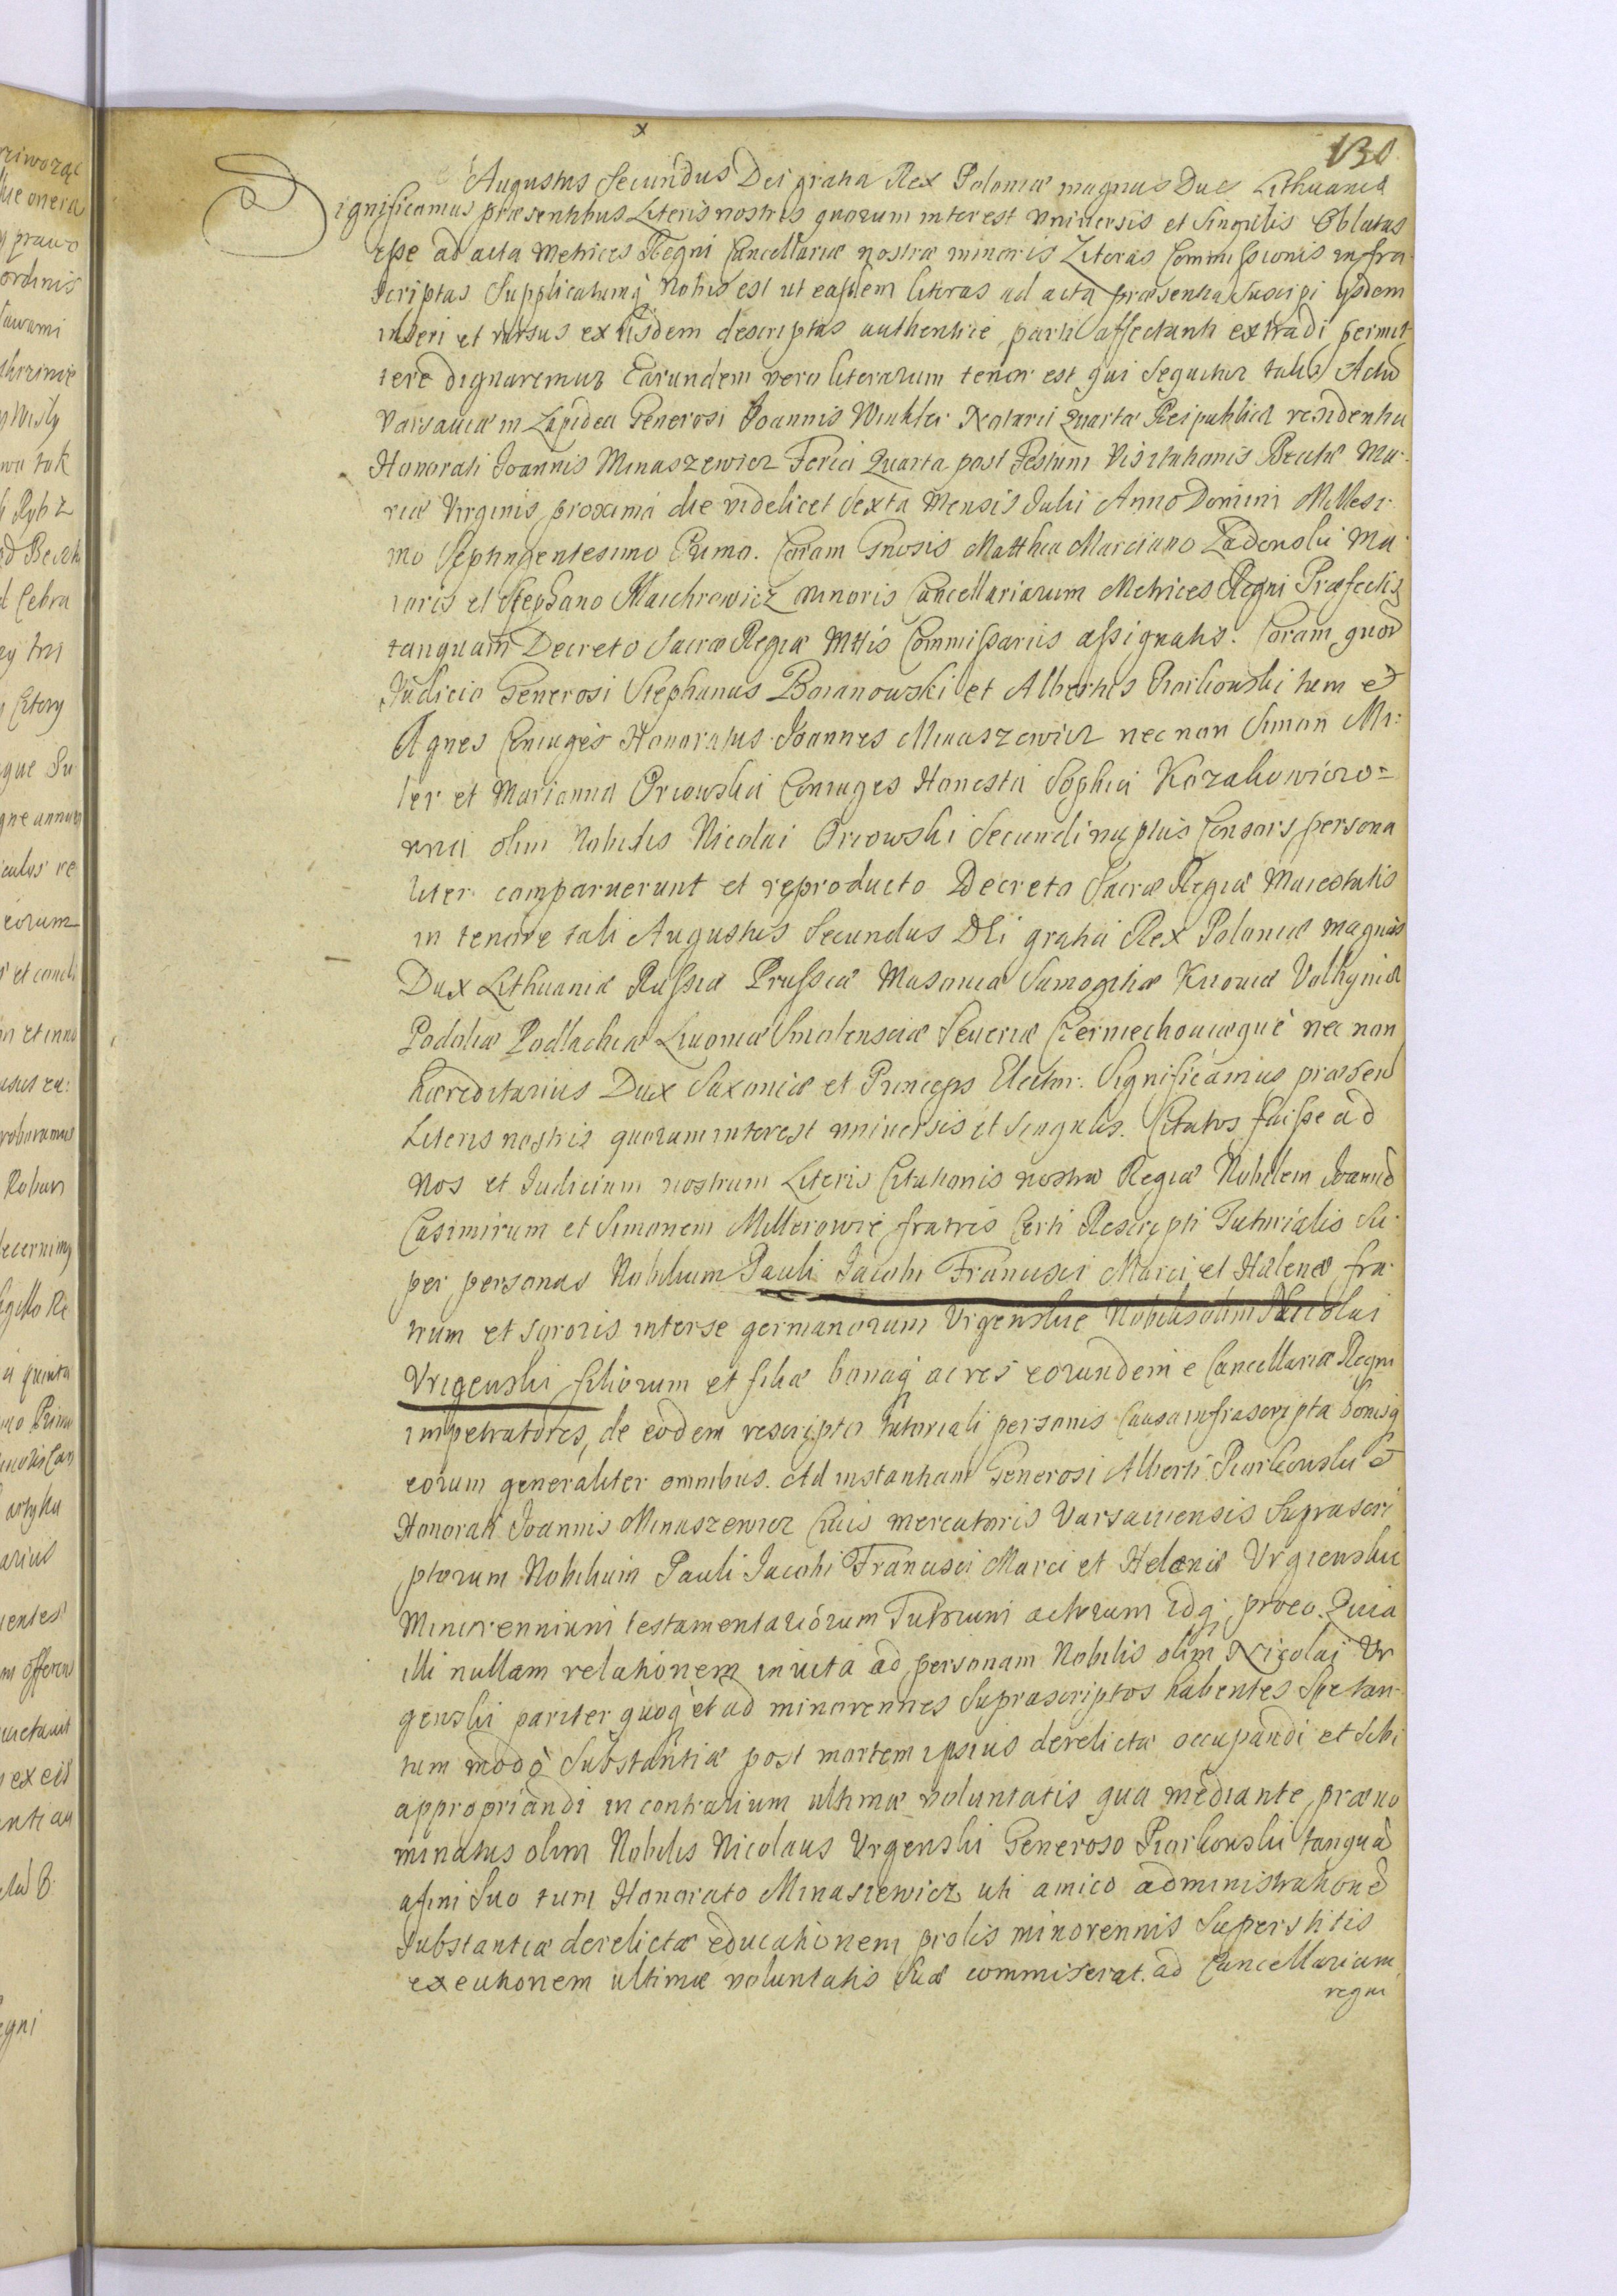 x
130
Augustus Secundus Dei gratia Rex Poloniæ magnus Dux Lithuaniæ
Significamus præsentibus Literis nostris quorum interest universis et singulis Oblatas
esse ad acta Metrices Regni Cancellariæ nostræ minoris Literas Commissionis infra
scriptas Supplicatumq nobis est ut easdem literas ad acta præsentia suscipi ijsdem
inseri et rursus ex iisdem descriptas authentice parti affectanti extradi permit
tere dignaremur Earundem vero literarum tenor est qui sequitur talis Actũ
Varsaviæ in Lapidea Generosi Joannis Winkler Notarii Quartæ Reipublicæ residentia
Honorati Joannis Minaszewicz Feria Quarta post Festum Visitationis Beatæ Ma-
riæ Virginis proxima die videlicet sexta Mensis Julii Anno Domini Millesi-
mo Septingentesimo Primo. Coram Gnosis Matthia Marciano Ladowski Ma-
ioris et Stephano Maichrowicz minoris Cancellariarum Metrices Regni Præfectis
tanquam Decreto Sacræ Regiæ Mttis Commissariis assignatis. Coram quod
Judicio Generosi Stephanus Baranowski et Albertus Piorkowski tum et
Agnes Coniuges Honoratus Joannes Minaszewicz nec non Simon Mi-
ler et Marianna Orlowska Coniuges Honesta Sophia Kozakowiczo=
wna olim Nobilis Nicolai Orlowski Secundi nuptus Consors persona
liter comparuerunt et reproducto Decreto Sacræ Regiæ Maiestatis
in tenore tali Augustus Secundus DEi gratia Rex Poloniæ magnus
Dux Lithuaniæ Russiæ Prussiæ Masoviæ Samogitiæ Kijoviæ Volhyniæ
Podoliæ Podlachiæ Livoniæ Smolensciæ Severiæ Czerniechoviæque nec non
hæreditarius Dux Saxoniæ et Princeps Elector. Significamus præsen
Literis nostris quorum interest universis et singulis. Citatos fuisse ad
Nos et Judicium nostrum Literis Citationis nostræ Regiæ Nobilem Joannẽ
Casimirum et Simonem Millerowie fratres Certi Rescripti Tutorialis Su-
per personas Nobilium Pauli Jacobi Francisci Marci et Helenæ fra-
trum et sororis interse germanorum Urgenskie Nobilis olim Nicolai
Urgenski filiorum et filiæ bonaq ac res eorundem e Cancellaria Regni
impetratores, de eodem rescripto tutoriali personis causa infrascripta bonisq
eorum generaliter omnibus. Ad instantiam Generosi Alberti Piorkowski et
Honorati Joannis Minaszewicz Civis mercatoris Varsaviensis Suprascri
ptorum Nobilium Pauli Jacobi Francisci Marci et Helenæ Urgienskie
Minorennium testamentariorum Tutorum actorum Idq. pro eo. Quia
illi nullam relationem in vita ad personam Nobilis olim Nicolai Ur
genski pariter quoq et ad minorennes Suprascriptos habentes Spe tan-
tum modo substantiæ post mortem ipsius derelictæ occupandi et sibi
appropriandi in contrarium ultimæ voluntatis qua mediante præno
minatus olim Nobilis Nicolaus Urgenski Generoso Piorkowski tanquã
afini suo tum Honorato Minasiewicz uti amico administrationẽ
substantiæ derelictæ educationem prolis minorennis Superstitis
executionem ultimæ voluntatis suæ commiserat. ad Cancellariam
regni